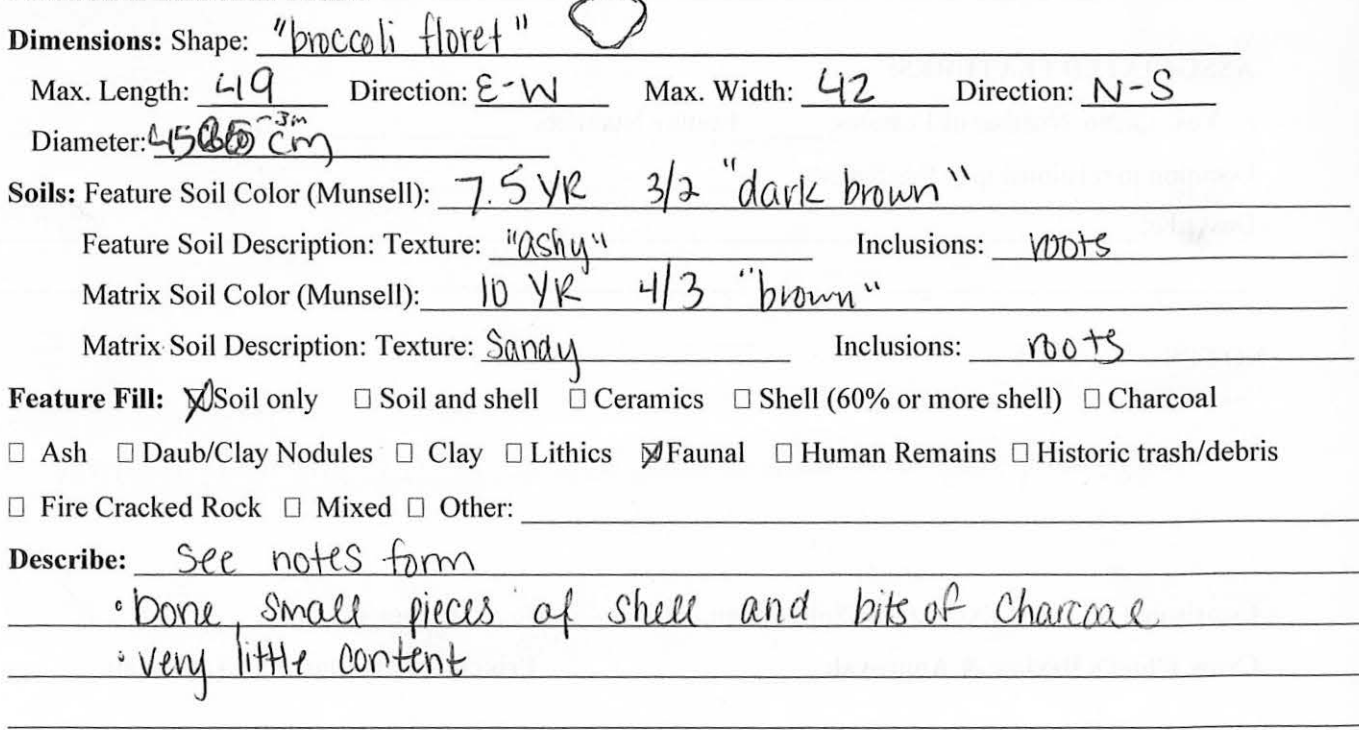 Dimensions: Shape: "broccoli floret"
Max. Length: 49 Direction: E-W Max. Width: 42 Direction: N-S
Diameter: 45 cm
Soils: Feature Soil Color (Munsell): 7.5 YR 3/2 "dark brown"
Feature Soil Description: Texture: "ashy" Inclusions: roots
Matrix Soil Color (Munsell): 10 YR 4/3 "brown"
Matrix Soil Description: Texture: Sandy Inclusions: roots
Feature Fill: ☒ Soil only ☐ Soil and shell ☐ Ceramics ☐ Shell (60% or more shell) ☐ Charcoal
☐ Ash ☐ Daub/Clay Nodules ☐ Clay ☐ Lithics ☒ Faunal ☐ Human Remains ☐ Historic trash/debris
☐ Fire Cracked Rock ☐ Mixed ☐ Other:
Describe: See notes form
• bone, small pieces of shell and bits of charcoal
• very little content